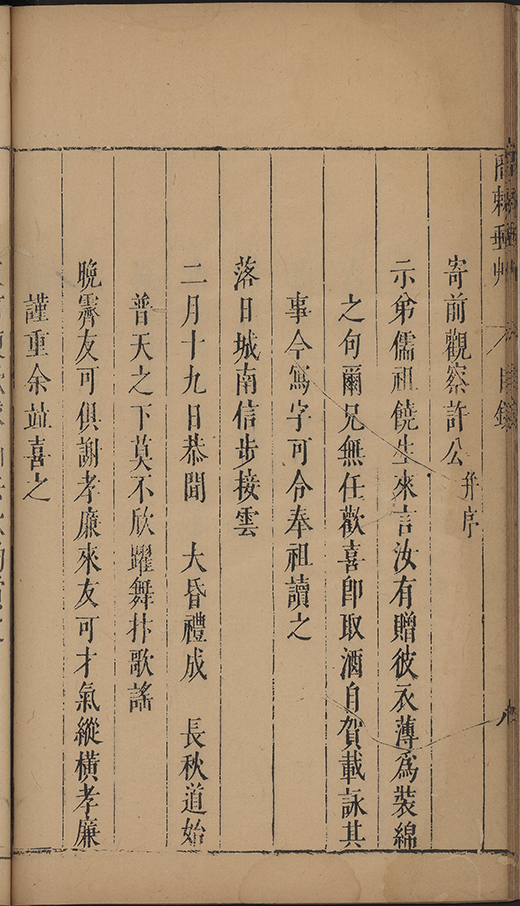 寄前觀察許公并序
示弟儒祖饒生來言汝有贈彼衣薄爲裝綿
之句爾兄無任歡喜卽取酒自賀載詠其
事今寫字可令奉祖讀之
落日城南信步接雲
二月十九日恭聞　大昏禮成　長秋道始
普天之下莫不欣躍舞抃歌謠
晚霽友可俱謝孝廉來友可才氣縱橫孝廉
謹重余竝喜之